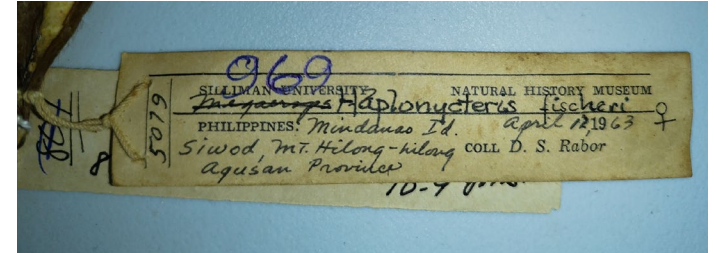 969
SILLIMAN UNIVERSITY NATURAL HISTORY MUSEUM
Megaerops Haplonycteris fischeri ♀
PHILIPPINES: Mindanao Id. April 12, 1963
Siwod, MT. Hilong-hilong COLL D. S. Rabor
Agusan Province
5079
8